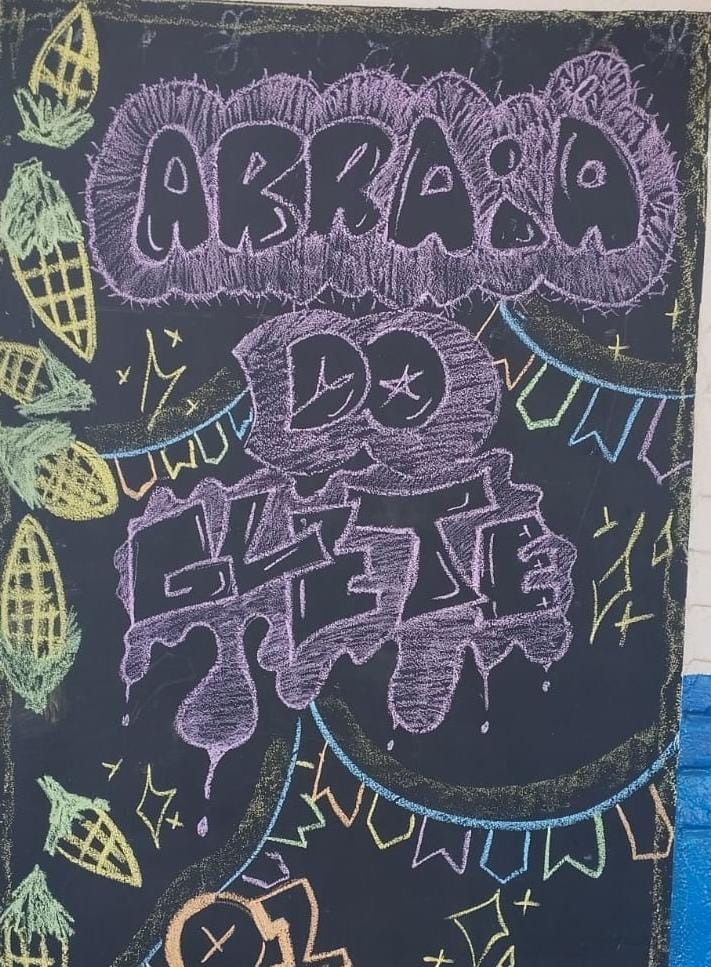 ARRAIA
DO
GLETE